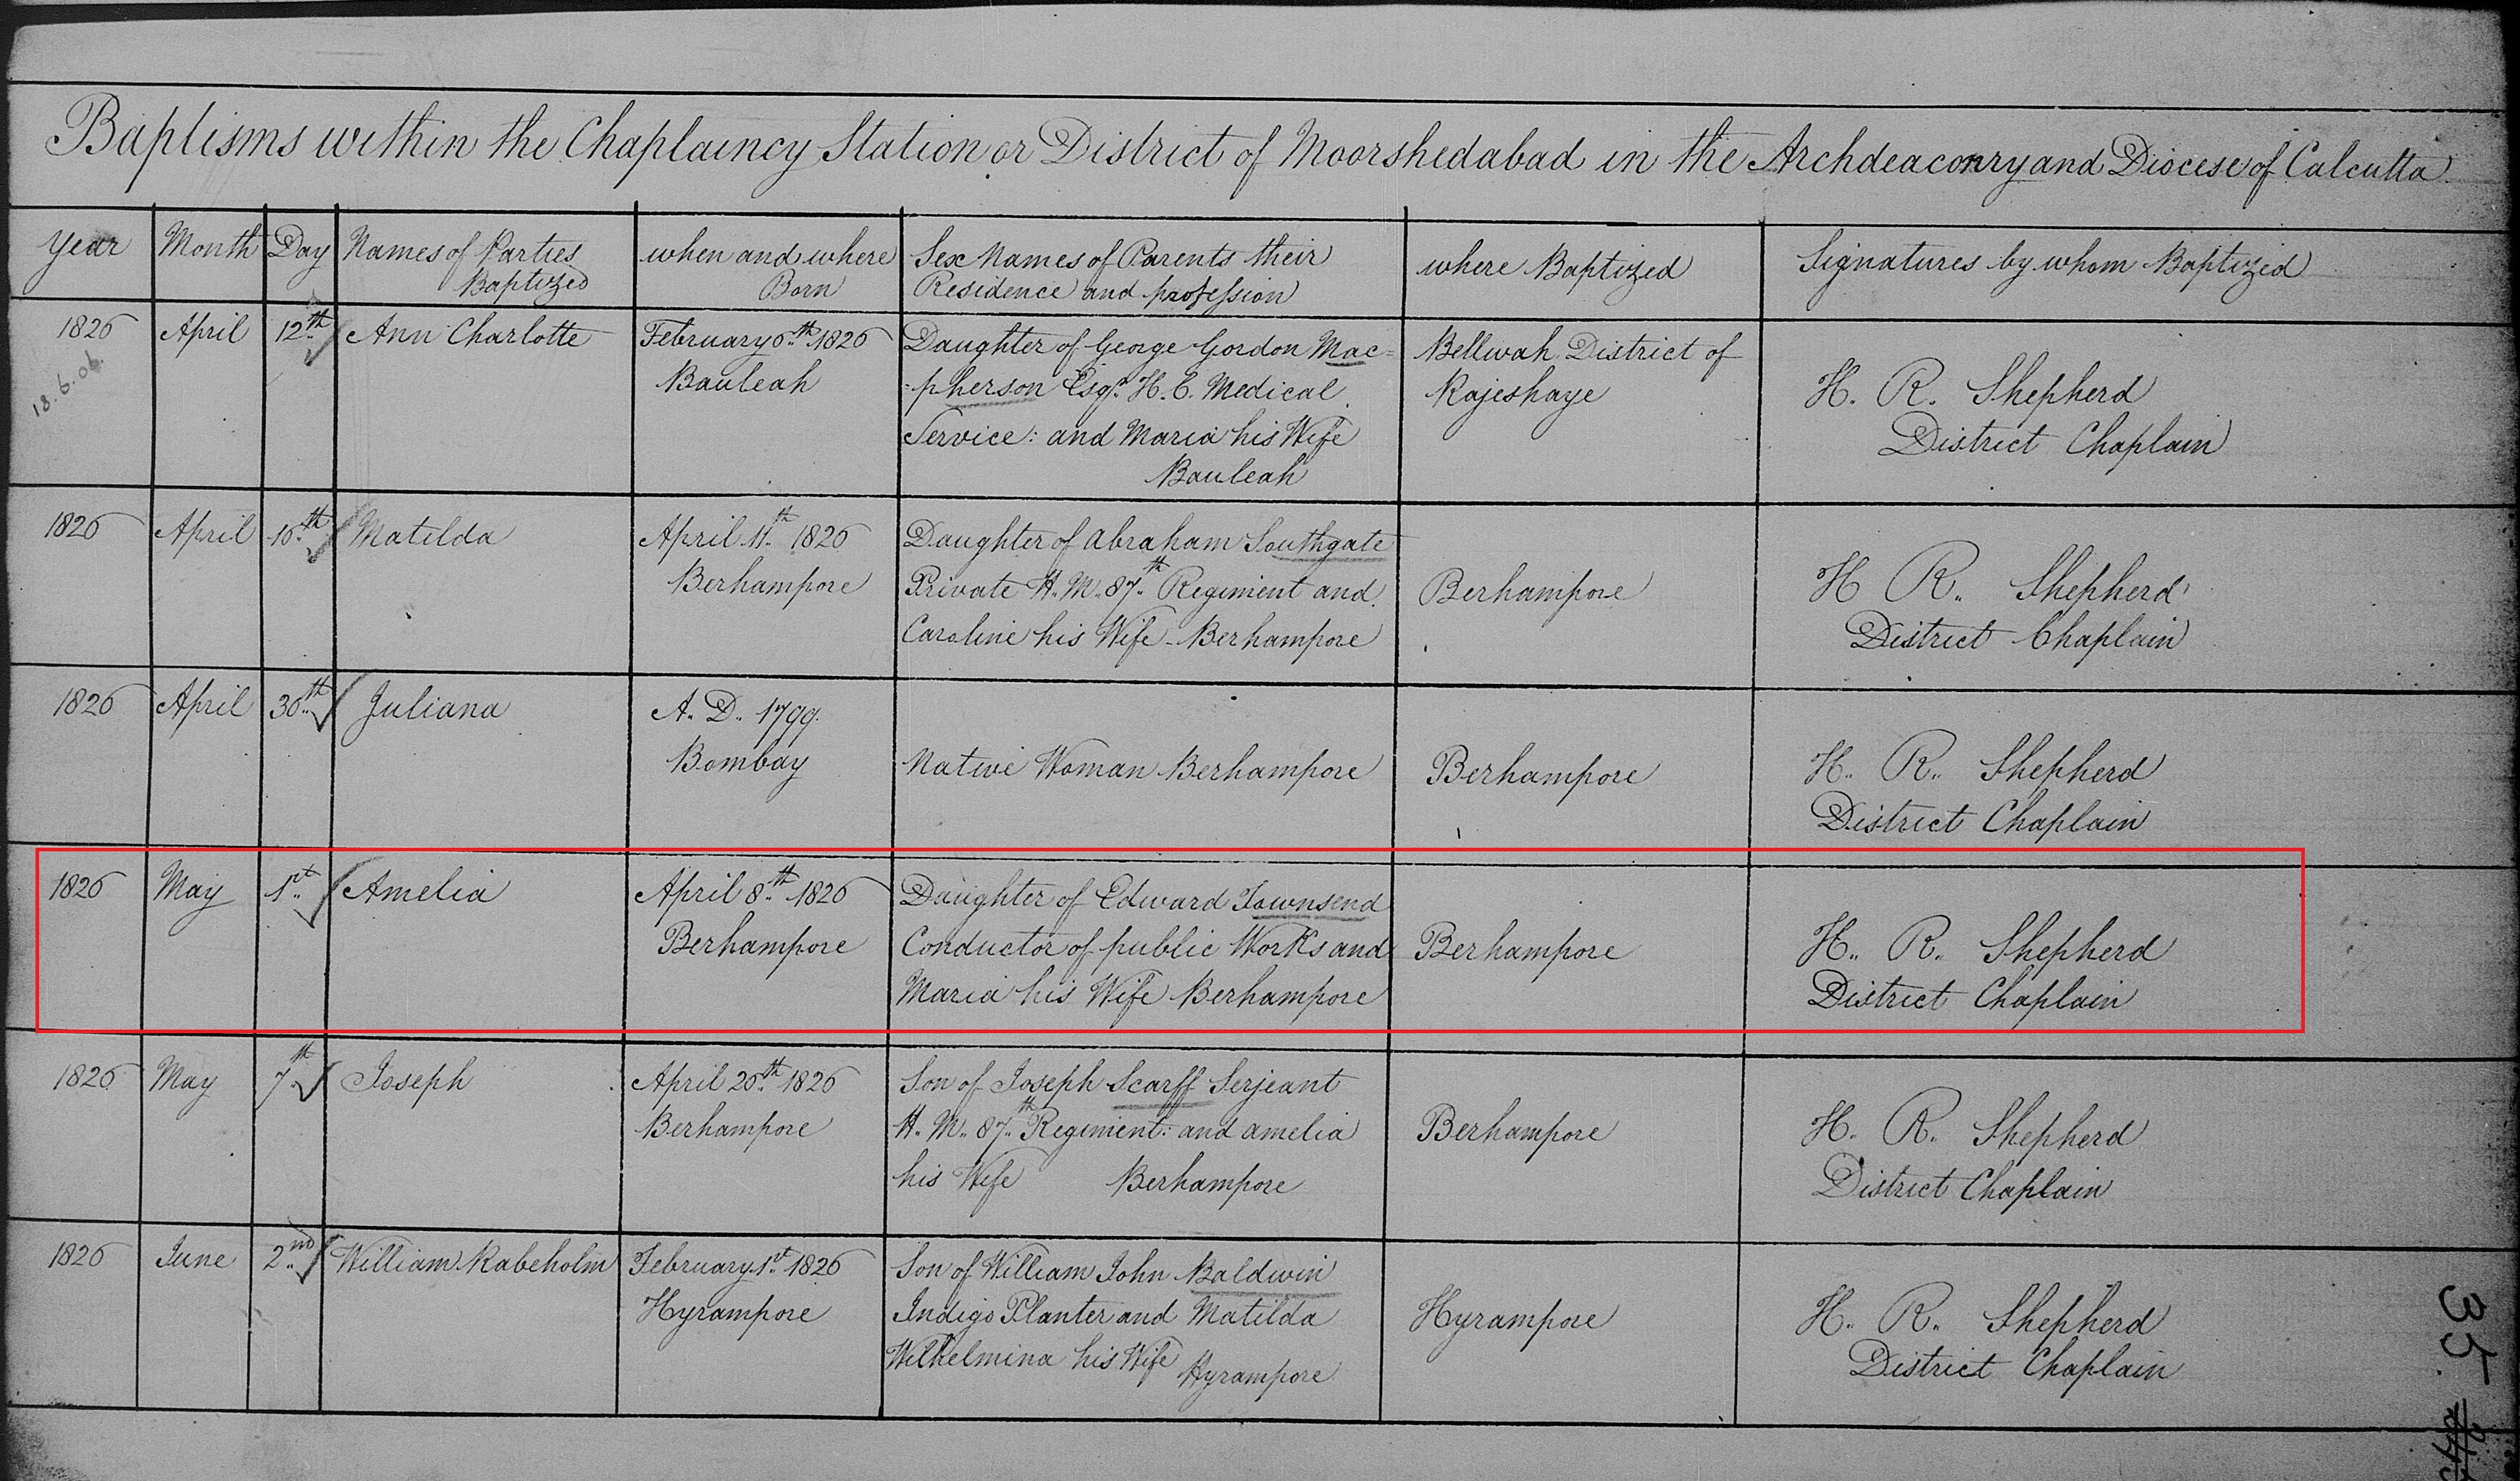 Baptisms within the Chaplaincy Station or District of Moorshedabad in the Archdeaconry and Diocese of Calcutta
Year Month Day Names of Parties Baptized when and where Born Sex Names of Parents their Residence and profession where Baptized Signatures by whom Baptized
1826 April 12th Ann Charlotte February 6th 1826 Daughter of George Gordon Mac= Bellwah District of
18.6.06
Bauleah =pherson Esqr. H. C. Medical Rajeshaye H. R. Shepherd
Service: and Maria his Wife District Chaplain
Bauleah
1826 April 16th Matilda April 11th 1826 Daughter of Abraham Southgate
Berhampore Private H. M. 87th Regiment and Berhampore H R. Shepherd
Caroline his Wife - Berhampore District Chaplain
1826 April 30th Juliana A. D. 1799.
Bombay Native Woman Berhampore Berhampore H. R. Shepherd
District Chaplain
1826 May 1st Amelia April 8th 1826 Daughter of Edward Townsend
Berhampore Conductor of public Works and Berhampore H. R. Shepherd
Maria his Wife Berhampore District Chaplain
1826 May 7th Joseph April 20th 1826 Son of Joseph Scarff Serjeant
Berhampore H. M. 87th Regiment: and amelia Berhampore H. R. Shepherd
his Wife Berhampore District Chaplain
1826 June 2nd William Rabeholm February 1st 1826 Son of William John Baldwin
Hyrampore Indigo Planter and Matilda Hyrampore H. R. Shepherd
Wilhelmina his Wife Hyrampore District Chaplain
35